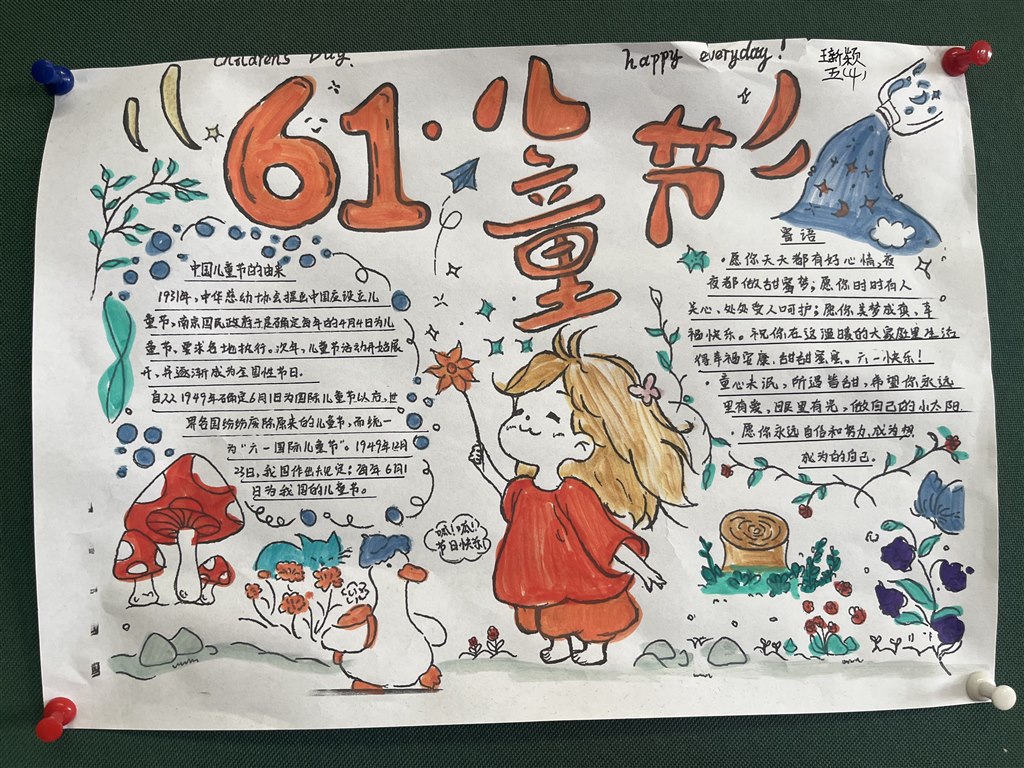 Childrens Day.
happy everyday!
五(4)
61·儿童节
中国儿童节的由来
1931年,中华慈幼协会提出中国应设立儿
童节,南京国民政府于是确定每年的4月4日为儿
童节,要求各地执行。次年,儿童节活动开始展
开,并逐渐成为全国性节日.
自从1949年确定6月1日为国际儿童节以后,世
界各国纷纷废除原来的儿童节,而统一
为“六一国际儿童节”。1949年12月
23日,我国作出规定:每年6月1
日为我国的儿童节。
寄语
·愿你天天都有好心情,夜
夜都做甜蜜梦;愿你时时有人
关心,处处受人呵护;愿你美梦成真,幸
福快乐。祝你在这温暖的大家庭里生活
得幸福安康,甜甜蜜蜜。六一快乐!
·童心未泯,所遇皆甜,希望你永远
里有爱,眼里有光,做自己的小太阳.
·愿你永远自信和努力,成为想
成为的自己。
呱!呱!
节日快乐!